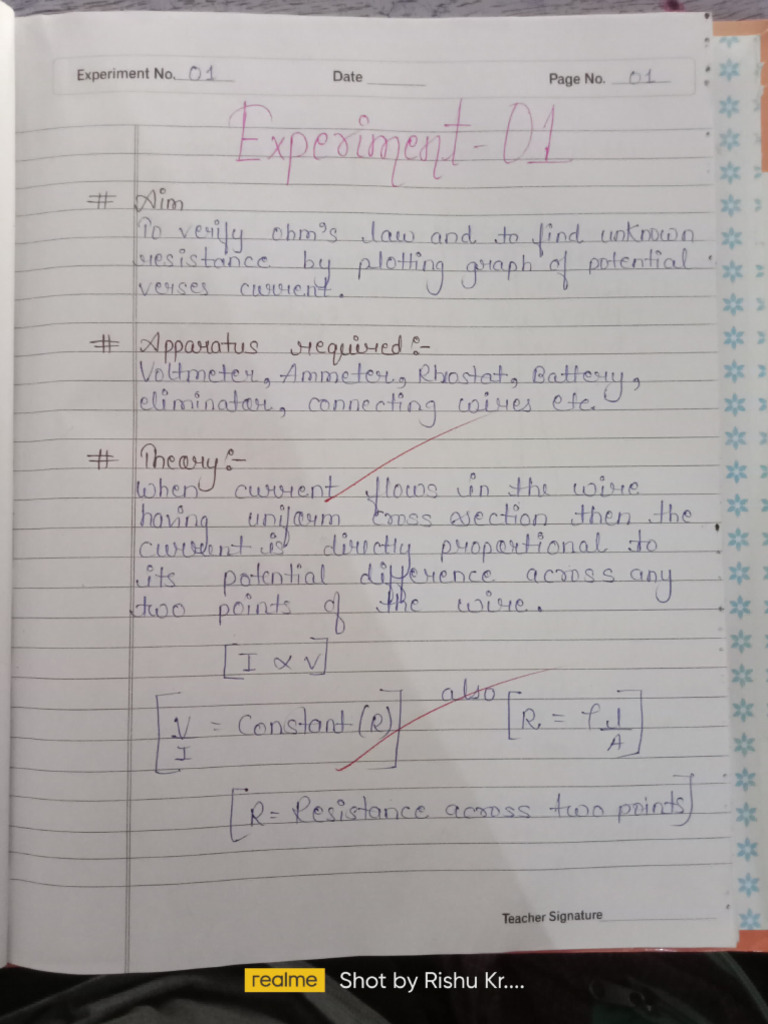 Experiment No. 01 Date Page No. 01
Experiment - 01
# Aim
To verify ohm's law and to find unknown
resistance by plotting graph of potential
verses current.
# Apparatus required :-
Voltmeter, Ammeter, Rhostat, Battery,
eliminator, connecting wires etc.
# Theory :-
When current flows in the wire
having uniform cross section then the
current is directly proportional to
its potential difference across any
two points of the wire.
[I ∝ V]
[V/I = Constant (R)] also [R = ρ l/A]
[R = Resistance across two points]
Teacher Signature
realme Shot by Rishu Kr....